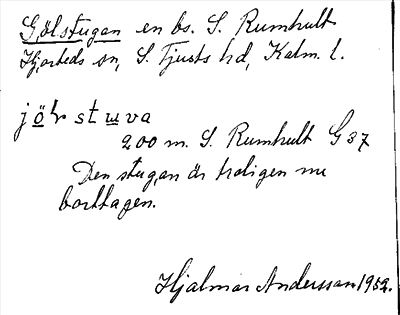 Gölstugan en bs. S. Rumhult
Hjorteds sn, S. Tjusts hd, Kalm. l.
jölstuva
200 m. S. Rumhult G 37
Den stugan är troligen nu
borttagen.
Hjalmar Andersson 1952.